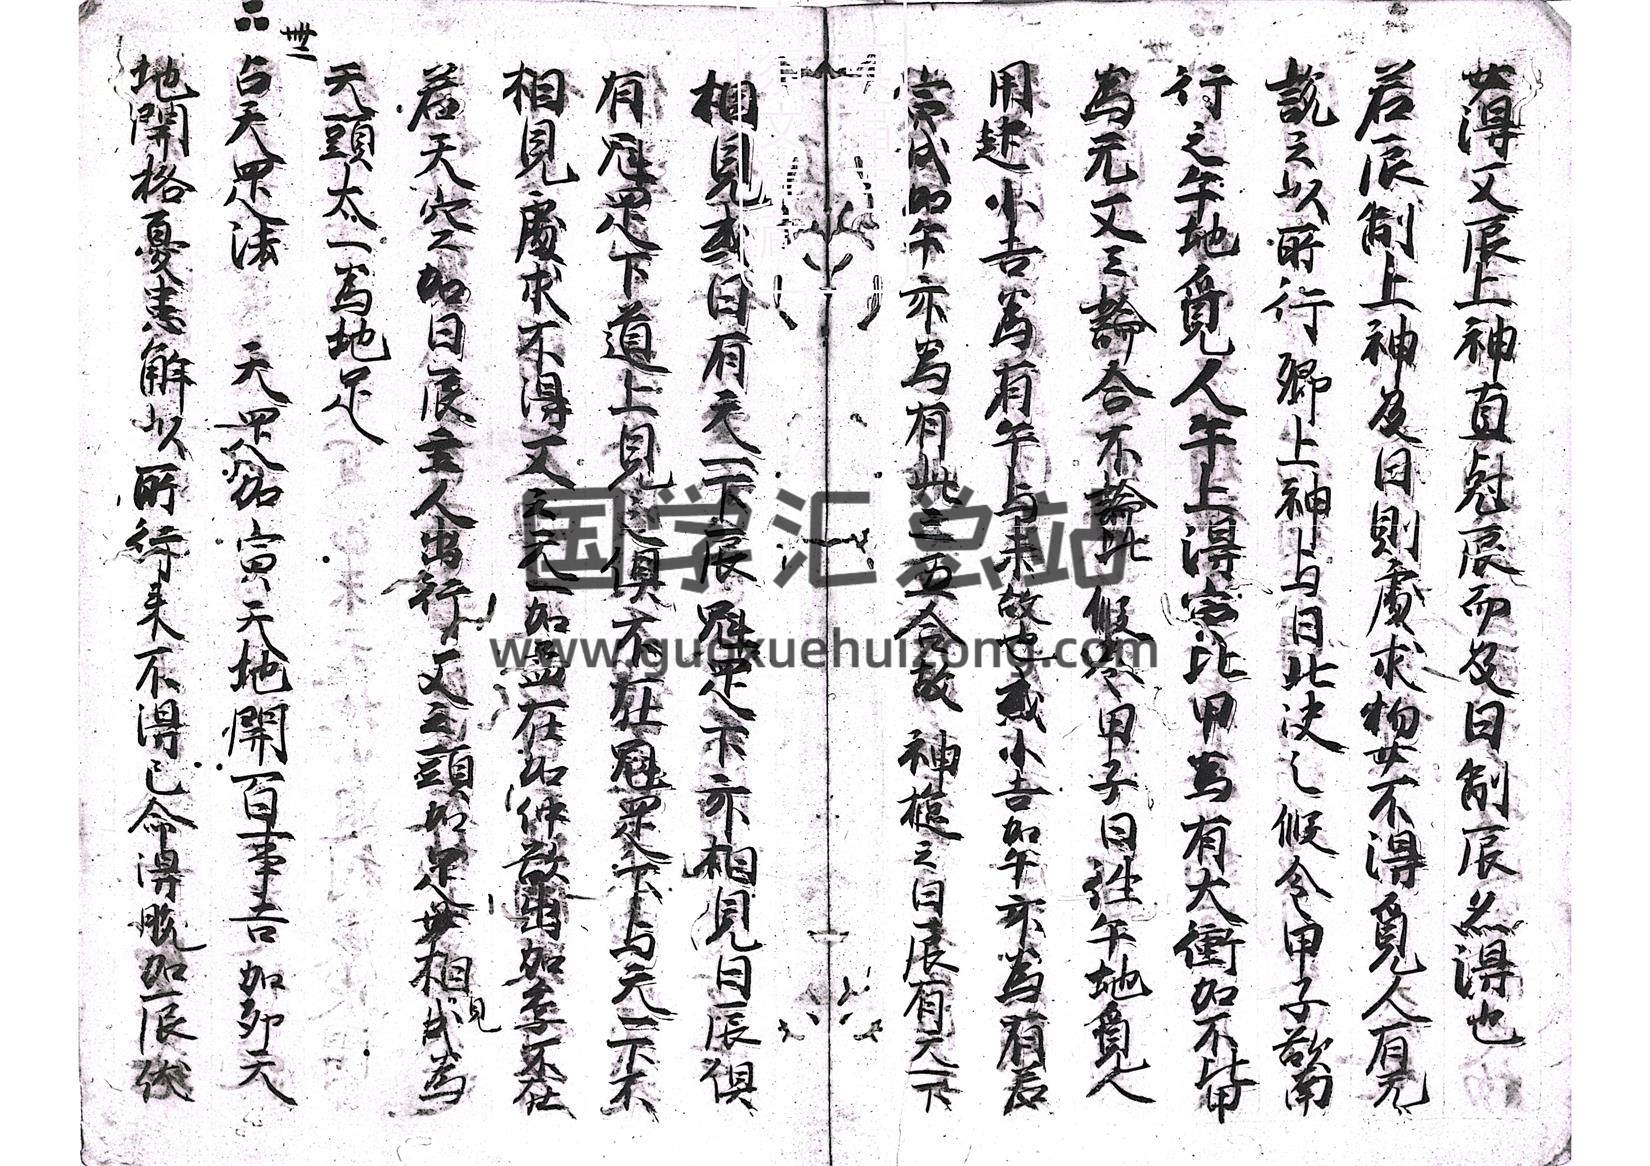 得又辰上神直克辰而及日制辰並得也
若辰制上神及日則處求物女不得覓人有无
說之以所行鄉上神与日比决之假令甲子欲南
行之午地覓人午上得害比甲為有大衝加不比甲
為元又云論合不論比假令甲子日往午地覓人
用起小吉為有午与未故也或小吉加午亦為有若
加午亦為有此之五合故 神樞之日辰有天一下
相見或日有天一下辰魁罡下亦相見日辰俱
有魁罡下道上見之俱不在魁罡下与天一下不
相見處求不得又云天一加孟在加仲欲出加季不在
若天穴之加日辰主人出行又云頭加足世相見為
天頭太一為地足
卅二
占天罡法 天罡加寅天地開百事吉 加卯天
地開格憂患解以所行来不得已命得脱加辰伏
国学汇总站
www.guoxuehuizong.com